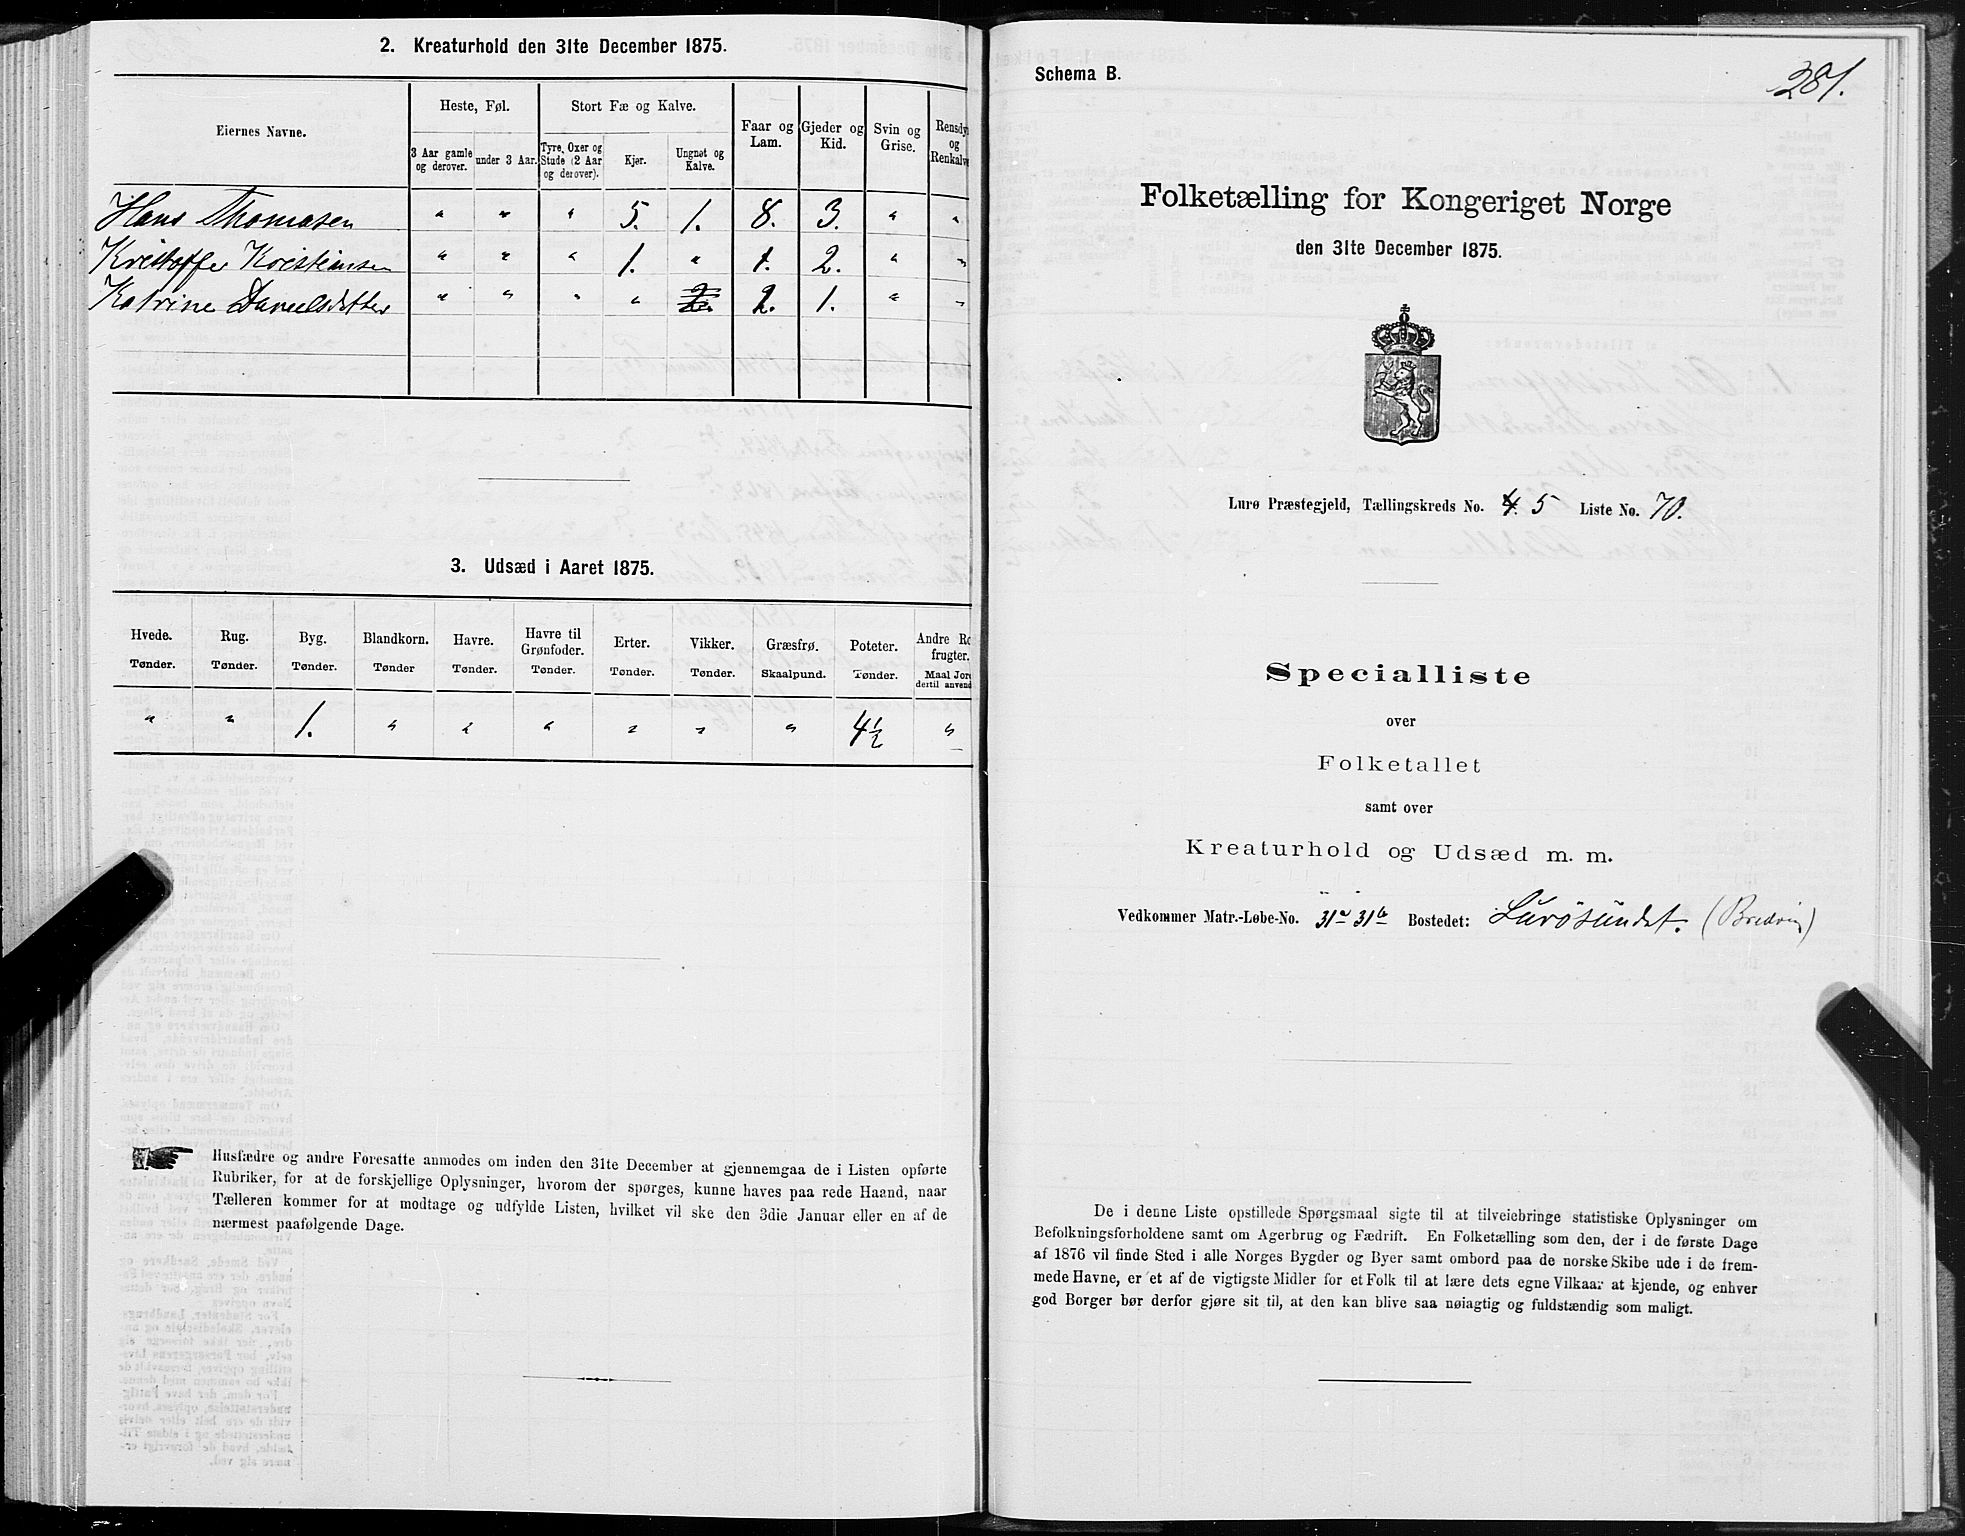 2. Kreaturhold den 31te December 1875.
Eiernes Navne.
Heste, Føl.
Stort Fæ og Kalve.
Faar og Lam.
Gjeder og Kid.
Svin og Grise.
Rensdyr og Renkalve
3 Aar gamle og derover.
under 3 Aar.
Tyre, Oxer og Stude (2 Aar og derover).
Kjør.
Ungnøt og Kalve.
Hans Thomasen " " " 5. 1. 8. 3. " "
Kristoffer Kristiansen " " " 1. " 1. 2. " "
Katrine Danielsdatter " " " " 2. 2. 1. " "
3. Udsæd i Aaret 1875.
Hvede. Rug. Byg. Blandkorn. Havre. Havre til Grønfoder. Erter. Vikker. Græsfrø. Poteter. Andre Ro frugter.
Tønder. Tønder. Tønder. Tønder Tønder. Tønder. Tønder. Tønder. Skaalpund. Tønder. Maal Jor dertil anvend
" " 1. " " " " " " 4½ "
Husfædre og andre Foresatte anmodes om inden den 31te December at gjennemgaa de i Listen opførte
Rubriker, for at de forskjellige Oplysninger, hvorom der spørges, kunne haves paa rede Haand, naar
Tælleren kommer for at modtage og udfylde Listen, hvilket vil ske den 3die Januar eller en af de
nærmest paafølgende Dage.
Schema B.
281.
Folketælling for Kongeriget Norge
den 31te December 1875.
Lurø Præstegjeld, Tællingskreds No. 4. 5 Liste No. 70.
Specialliste
over
Folketallet
samt over
Kreaturhold og Udsæd m. m.
Vedkommer Matr.-Løbe-No. 31a 31b Bostedet: Lurösundet. (Bredvig)
De i denne Liste opstillede Spørgsmaal sigte til at tilveiebringe statistiske Oplysninger om
Befolkningsforholdene samt om Agerbrug og Fædrift. En Folketælling som den, der i de første Dage
af 1876 vil finde Sted i alle Norges Bygder og Byer samt ombord paa de norske Skibe ude i de frem-
mede Havne, er et af de vigtigste Midler for et Folk til at lære dets egne Vilkaar at kjende, og enhver
god Borger bør derfor gjøre sit til, at den kan blive saa nøiagtig og fuldstændig som muligt.